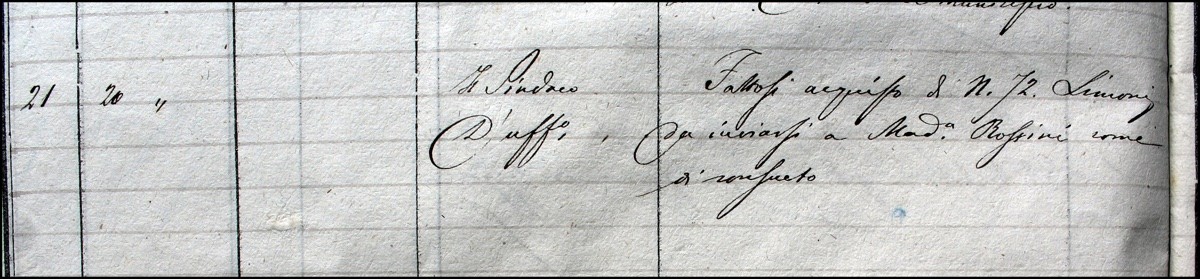 Municipio.
21 20 " Il Sindaco Fattosi acquisto di N. 72. Limoni,
D'uffo, da inviarsi a Mada. Rossini come
di consueto